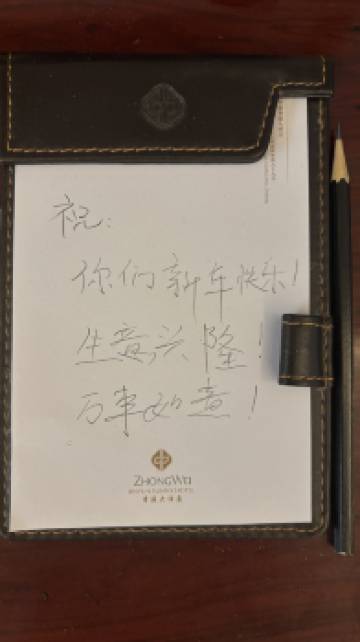 祝:
你们新年快乐!
生意兴隆!
万事如意!
ZHONGWEI